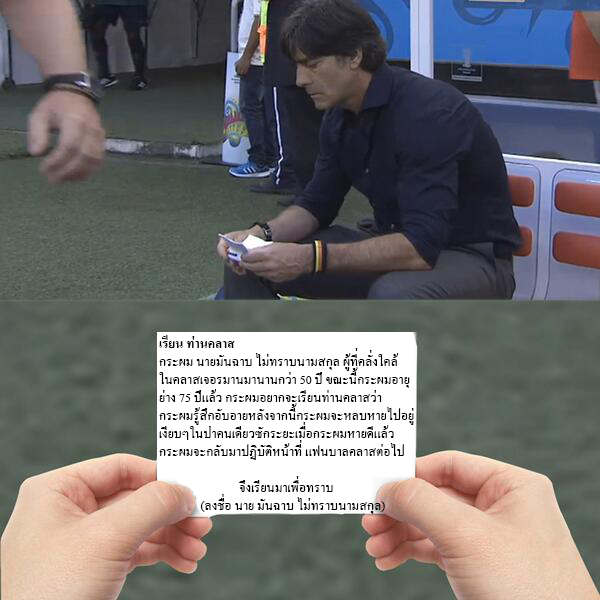 เรียน ท่านคลาส
กระผม นายมันฉาบ ไม่ทราบนามสกุล ผู้ที่คลั่งใคล้
ในคลาสเจอรมานมานานกว่า 50 ปี ขณะนี้กระผมอายุ
ย่าง 75 ปีแล้ว กระผมอยากจะเรียนท่านคลาสว่า
กระผมรู้สึกอับอายหลังจากนี้กระผมจะหลบหายไปอยู่
เงียบๆในป่าคนเดียวซักระยะเมื่อกระผมหายดีแล้ว
กระผมจะกลับมาปฎิบัติหน้าที่ แฟนบาลคลาสต่อไป
จึงเรียนมาเพื่อทราบ
(ลงชื่อ นาย มันฉาบ ไม่ทราบนามสกุล)